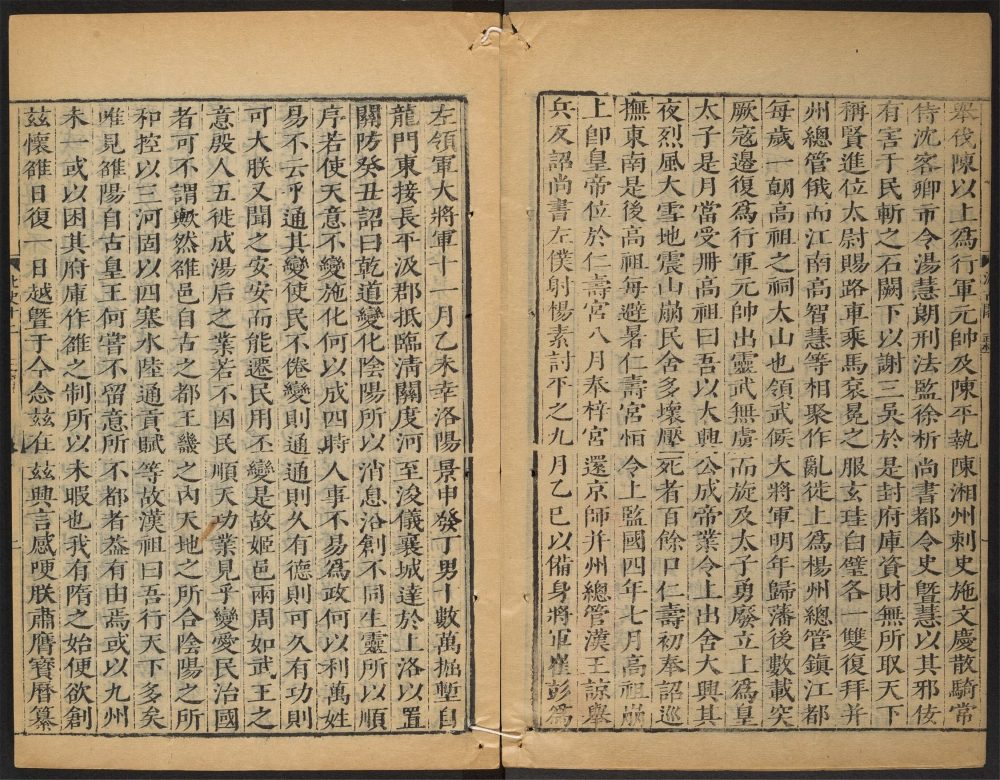 舉伐陳以上爲行軍元帥及陳平執陳湘州刺史施文慶散騎常
侍沈客卿市令湯慧朗刑法監徐析尚書都令史曁慧以其邪佞
有害于民斬之石闕下以謝三吳於是封府庫資財無所取天下
稱賢進位太尉賜路車乘馬衮冕之服玄珪白璧各一雙復拜并
州總管俄而江南高智慧等相聚作亂徙上爲楊州總管鎮江都
每歲一朝高祖之祠太山也領武候大將軍明年歸藩後數載突
厥寇邊復爲行軍元帥出靈武無虜而旋及太子勇廢立上爲皇
太子是月當受冊高祖曰吾以大興公成帝業令上出舍大興其
夜烈風大雪地震山崩民舍多壞壓死者百餘口仁壽初奉詔巡
撫東南是後高祖每避暑仁壽宮恒令上監國四年七月高祖崩
上卽皇帝位於仁壽宮八月奉梓宮還京師并州總管漢王諒舉
兵反詔尚書左僕射楊素討平之九月乙巳以備身將軍崔彭爲
左領軍大將軍十一月乙未幸洛陽景申發丁男十數萬掘塹自
龍門東接長平汲郡抵臨清關度河至浚儀襄城達於上洛以置
關防癸丑詔曰乾道變化陰陽所以消息沿創不同生靈所以順
序若使天意不變施化何以成四時人事不易爲政何以利萬姓
易不云乎通其變使民不倦變則通通則久有德則可久有功則
可大朕又聞之安安而能遷民用丕變是故姬邑兩周如武王之
意殷人五徙成湯后之業若不因民順天功業見乎變愛民治國
者可不謂歟然雒邑自古之都王畿之內天地之所合陰陽之所
和控以三河固以四塞水陸通貢賦等故漢祖曰吾行天下多矣
唯見雒陽自古皇王何嘗不留意所不都者葢有由焉或以九州
未一或以困其府庫作雒之制所以未暇也我有隋之始便欲創
茲懷雒日復一日越曁于今念茲在茲興言感哽朕肅膺寶曆纂